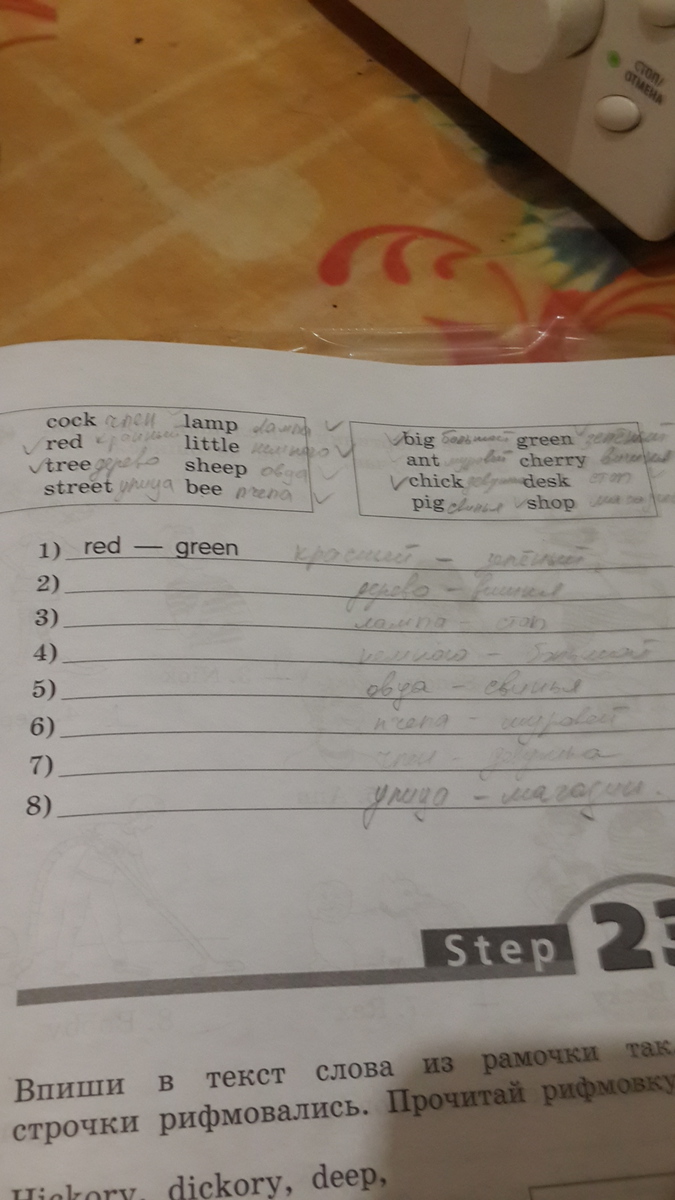 СТОП/
ОТМЕНА
cock член lamp лампа
red красный little немного
tree дерево sheep овца
street улица bee пчела
big большой green зелёный
ant муравей cherry вишня
chick desk стол
pig свинья shop магазин
1) red — green красный – зелёный
2) дерево – вишня
3) лампа – стол
4) немного – большой
5) овца – свинья
6) пчела – муравей
7)
8) улица – магазин.
Step 23
Впиши в текст слова из рамочки так
строчки рифмовались. Прочитай рифмовку
Hickory, dickory, deep,